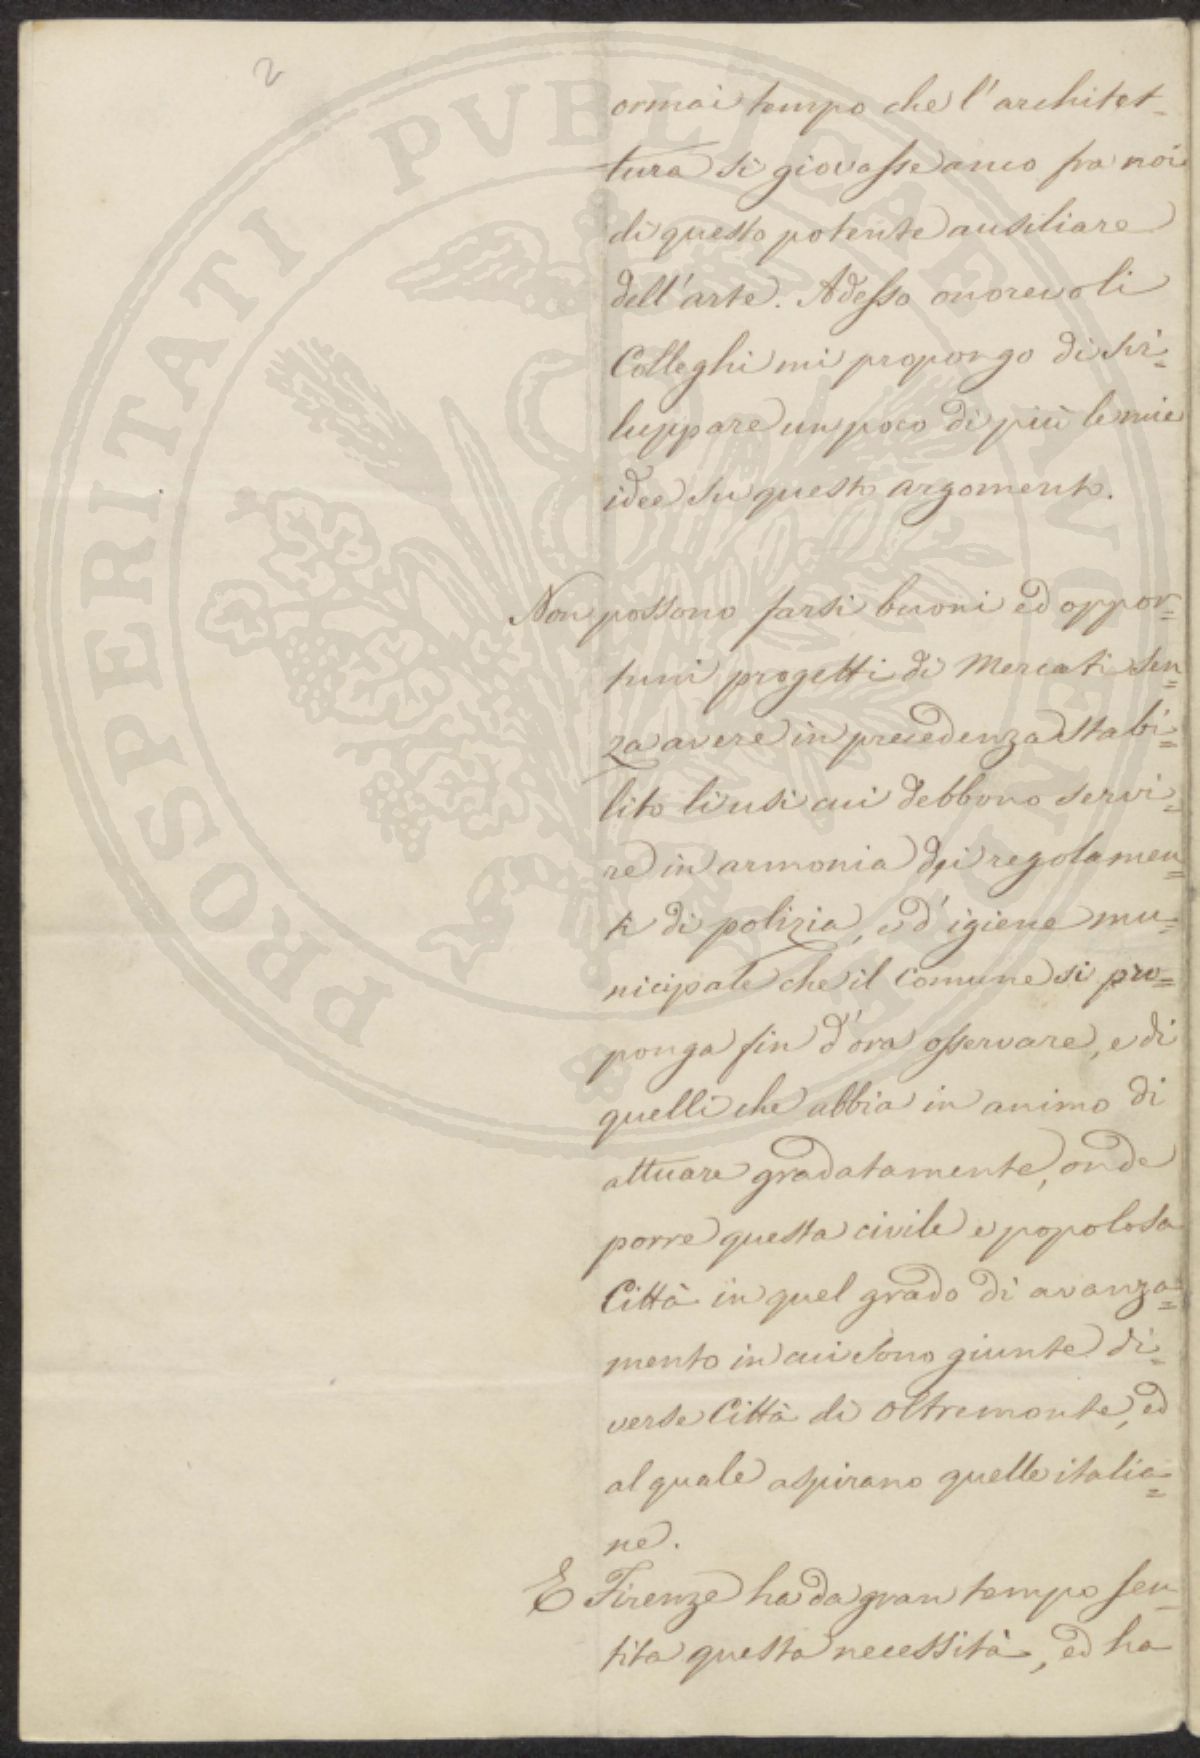 2
ormai tempo che l'architet-
tura si giovasse anco fra noi
di questo potente ausiliare
dell'arte. Adesso onorevoli
Colleghi mi propongo di svi=
luppare un poco di più le mie
idee su questo argomento.
Non possono farsi buoni ed oppor=
tuni progetti di Mercati sen=
za avere in precedenza stabi=
lito li usi cui debbono servi=
re in armonia dei regolamen=
ti di polizia, e d'igiene mu=
nicipale che il Comune si pro=
ponga fin d'ora osservare, e di
quelli che abbia in animo di
attuare gradatamente, onde
porre questa civile e popolosa
Città in quel grado di avanza=
mento in cui sono giunte di=
verse Città di Oltremonte, ed
al quale aspirano quelle italia=
ne.
E Firenze ha da gran tempo sen-
tita questa necessità, ed ha
PROSPERITATI PVBLICAE AVGENDAE